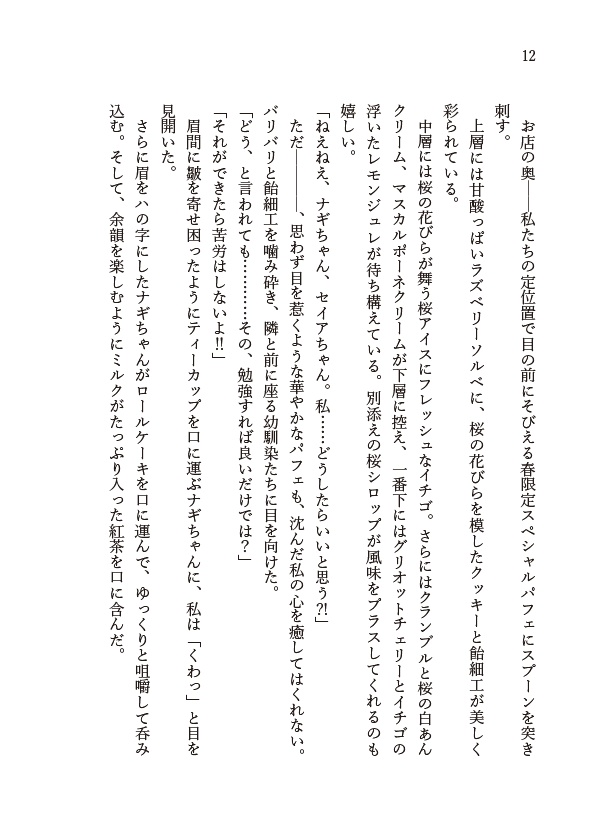 12
　お店の奥――私たちの定位置で目の前にそびえる春限定スペシャルパフェにスプーンを突き
刺す。
　上層には甘酸っぱいラズベリーソルベに、桜の花びらを模したクッキーと飴細工が美しく
彩られている。
　中層には桜の花びらが舞う桜アイスにフレッシュなイチゴ。さらにはクランブルと桜の白あん
クリーム、マスカルポーネクリームが下層に控え、一番下にはグリオットチェリーとイチゴの
浮いたレモンジュレが待ち構えている。別添えの桜シロップが風味をプラスしてくれるのも
嬉しい。
「ねえねえ、ナギちゃん、セイアちゃん。私……どうしたらいいと思う?!」
　ただ――――、思わず目を惹くような華やかなパフェも、沈んだ私の心を癒してはくれない。
バリバリと飴細工を噛み砕き、隣と前に座る幼馴染たちに目を向けた。
「どう、と言われても…………その、勉強すれば良いだけでは？」
「それができたら苦労はしないよ!!」
　眉間に皺を寄せ困ったようにティーカップを口に運ぶナギちゃんに、私は「くわっ」と目を
見開いた。
　さらに眉をハの字にしたナギちゃんがロールケーキを口に運んで、ゆっくりと咀嚼して呑み
込む。そして、余韻を楽しむようにミルクがたっぷり入った紅茶を口に含んだ。